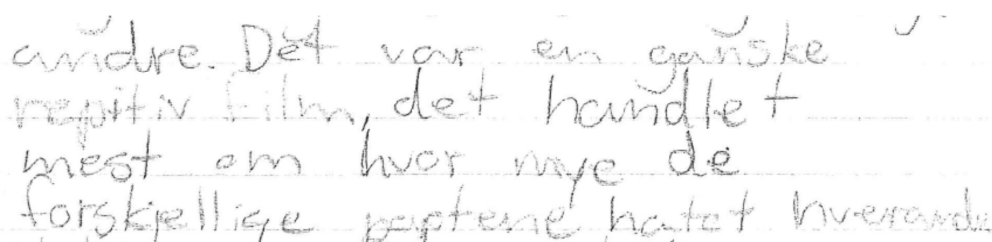 andre. Det var en ganske
repitiv film, det handlet
mest om hvor mye de
forskjellige partene hatet hverandre